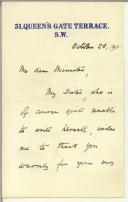 31, QUEEN'S GATE TERRACE.
S.W.
October 28, 1911.
My dear Minister,
My Sister, who is
of course quite unable
to write herself, wishes
me to thank you
warmly for your very